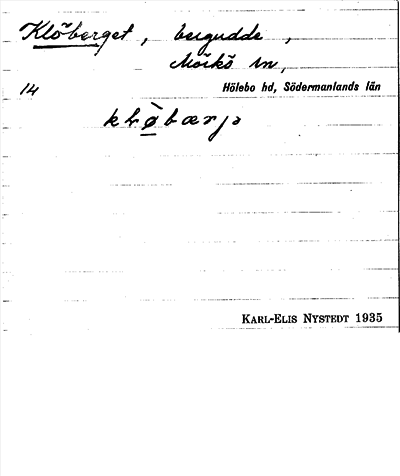 Klöberget, bergudde,
Mörkö sn,
14 Hölebo hd, Södermanlands län
klø̀bærjə
KARL-ELIS NYSTEDT 1935